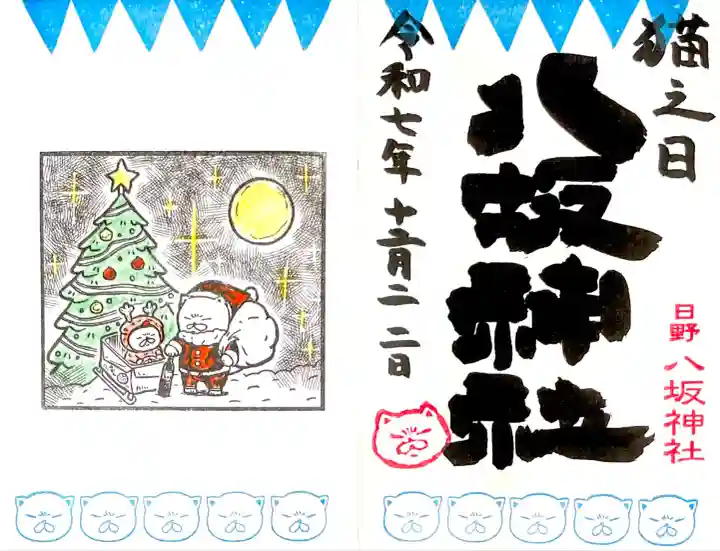 猫之日
八坂神社
日野 八坂神社
令和七年 十二月二二日